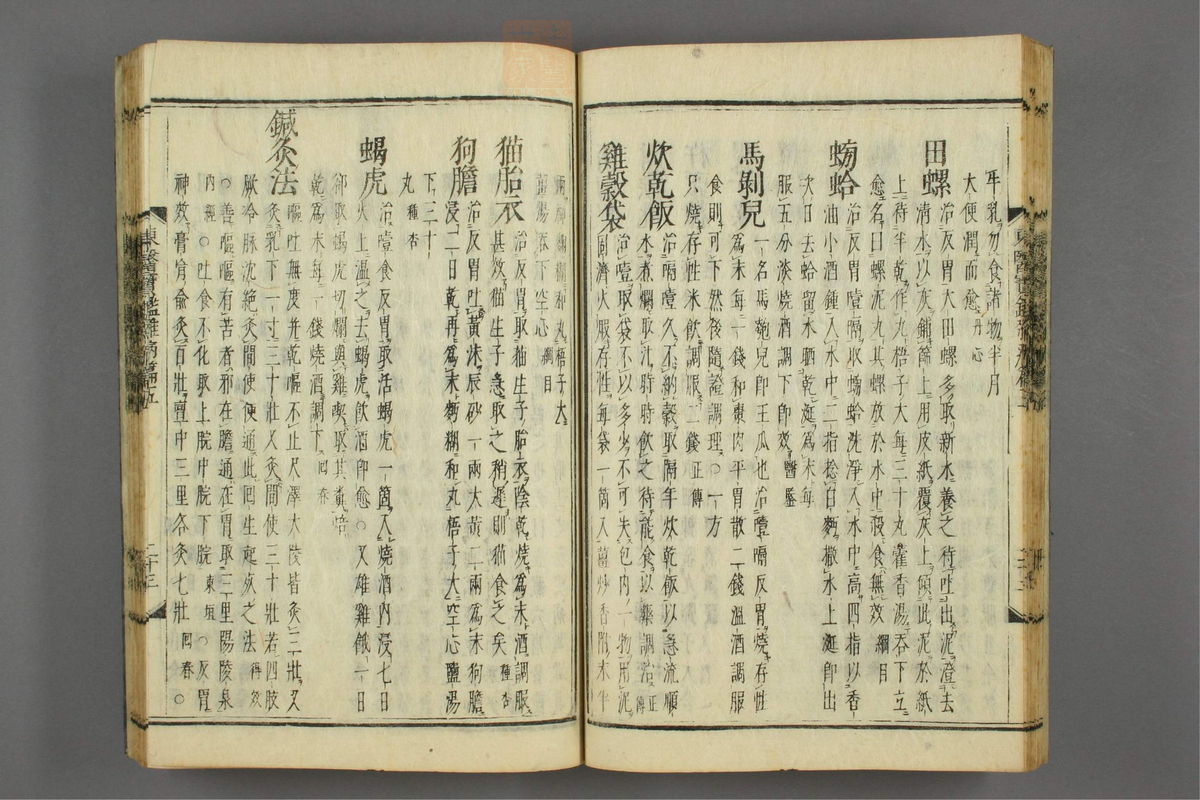 牛乳勿食諸物半月
大便潤而愈丹心
田螺治反胃大田螺多取新水養之待吐出泥澄去
清水以灰鋪篩上用皮紙覆灰上傾此泥於紙
上待半乾作丸梧子大每三十丸藿香湯吞下立
愈名曰螺泥丸其螺放於水中殺食無效綱目
蝣蛤治反胃噎膈取蝣蛤洗淨入水中高四指以香
油小酒鍾入水中二指捻白麪撒水上涎卽出
次日去蛤留水晒乾涎爲末每
服五分淡燒酒調下卽效醫鑒
馬剝兒一名馬㼎兒卽王瓜也治噎膈反胃燒存性
爲末每一錢和棗肉平胃散二錢溫酒調服
食則可下然後隨證調理○一方
只燒存性米飮調服二錢正傳
炊乾飯治膈噎久不納穀取隔年炊乾飯以急流順
水煮爛取汁時時飮之待能食以藥調治正傳
雞穀袋治噎取袋不以多少不可失包內一物用泥
固濟火煆存性每袋一箇入薑炒香附末半
空心綱目
猫胎衣治反胃取猫生子胎衣陰乾燒爲末酒調服
甚效猫生子急取之稍遲則猫食之矣種杏
狗膽治反胃吐黃沫辰砂一兩大黃二兩爲末狗膽
浸一日乾再爲末麪糊和丸梧子大空心鹽湯
下二十
丸種杏
蝎虎治噎食反胃取活蝎虎一箇入燒酒內浸七日
火上溫之去蝎虎飮酒卽愈○又雄雞餓一日
卻取蝎虎切爛與雞喫取其糞焙
乾爲末每一錢燒酒調下回春
鍼灸法嘔吐無度并乾嘔不止尺澤大陵皆灸三壯又
灸乳下一寸三十壯又灸間使三十壯若四肢
厥冷脉沈絶灸間使便通此回生起死之法得效
○善嘔嘔有苦者邪在膽逋在胃取三里陽陵泉
內經○吐食不化取上脘中脘下脘東垣○反胃
神效膏肓俞灸百壯膻中三里各灸七壯回春○
東醫寶鑑雜病篇五
二十三